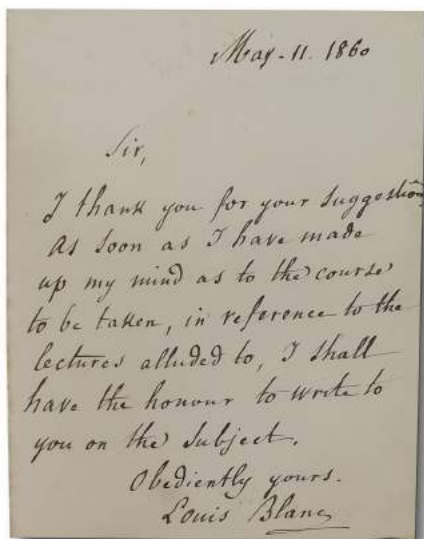 May - 11. 1860
Sir,
I thank you for your suggestion.
As soon as I have made
up my mind as to the course
to be taken, in reference to the
lectures alluded to, I shall
have the honour to write to
you on the subject.
Obediently yours.
Louis Blanc